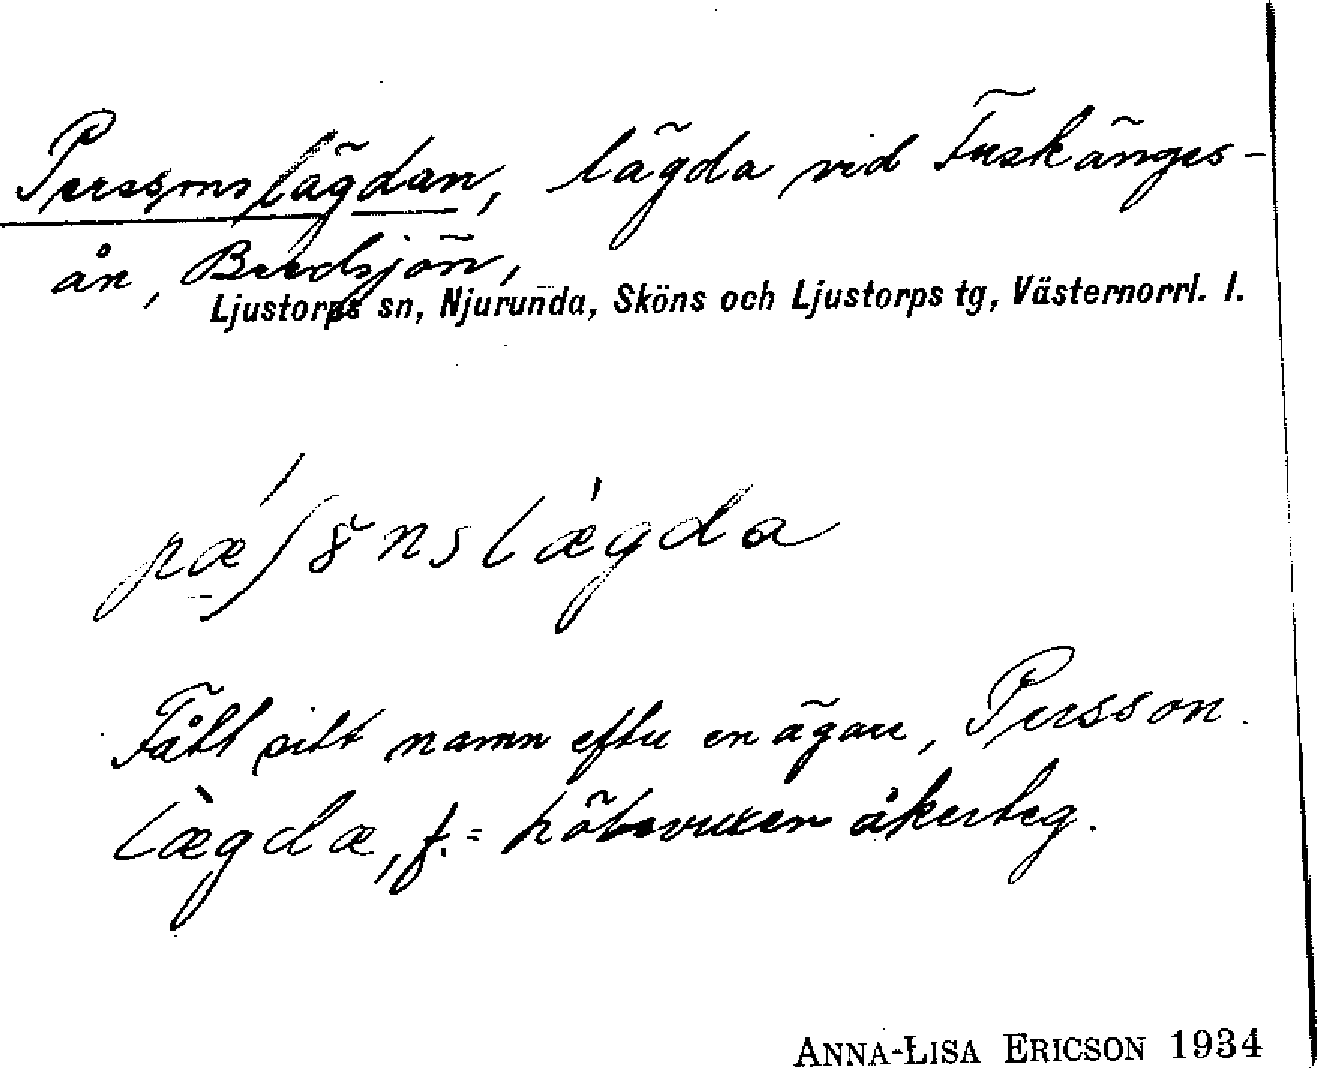 Perssonslägdan, lägda vid Fuskänges-
ån, Bredsjön,
Ljustorps sn, Njurunda, Sköns och Ljustorps tg, Västernorrl. l.
Fått sitt namn efter en ägare, Persson.
lægda, f. = höbevuxen åkerteg.
ANNA-LISA ERICSON 1934